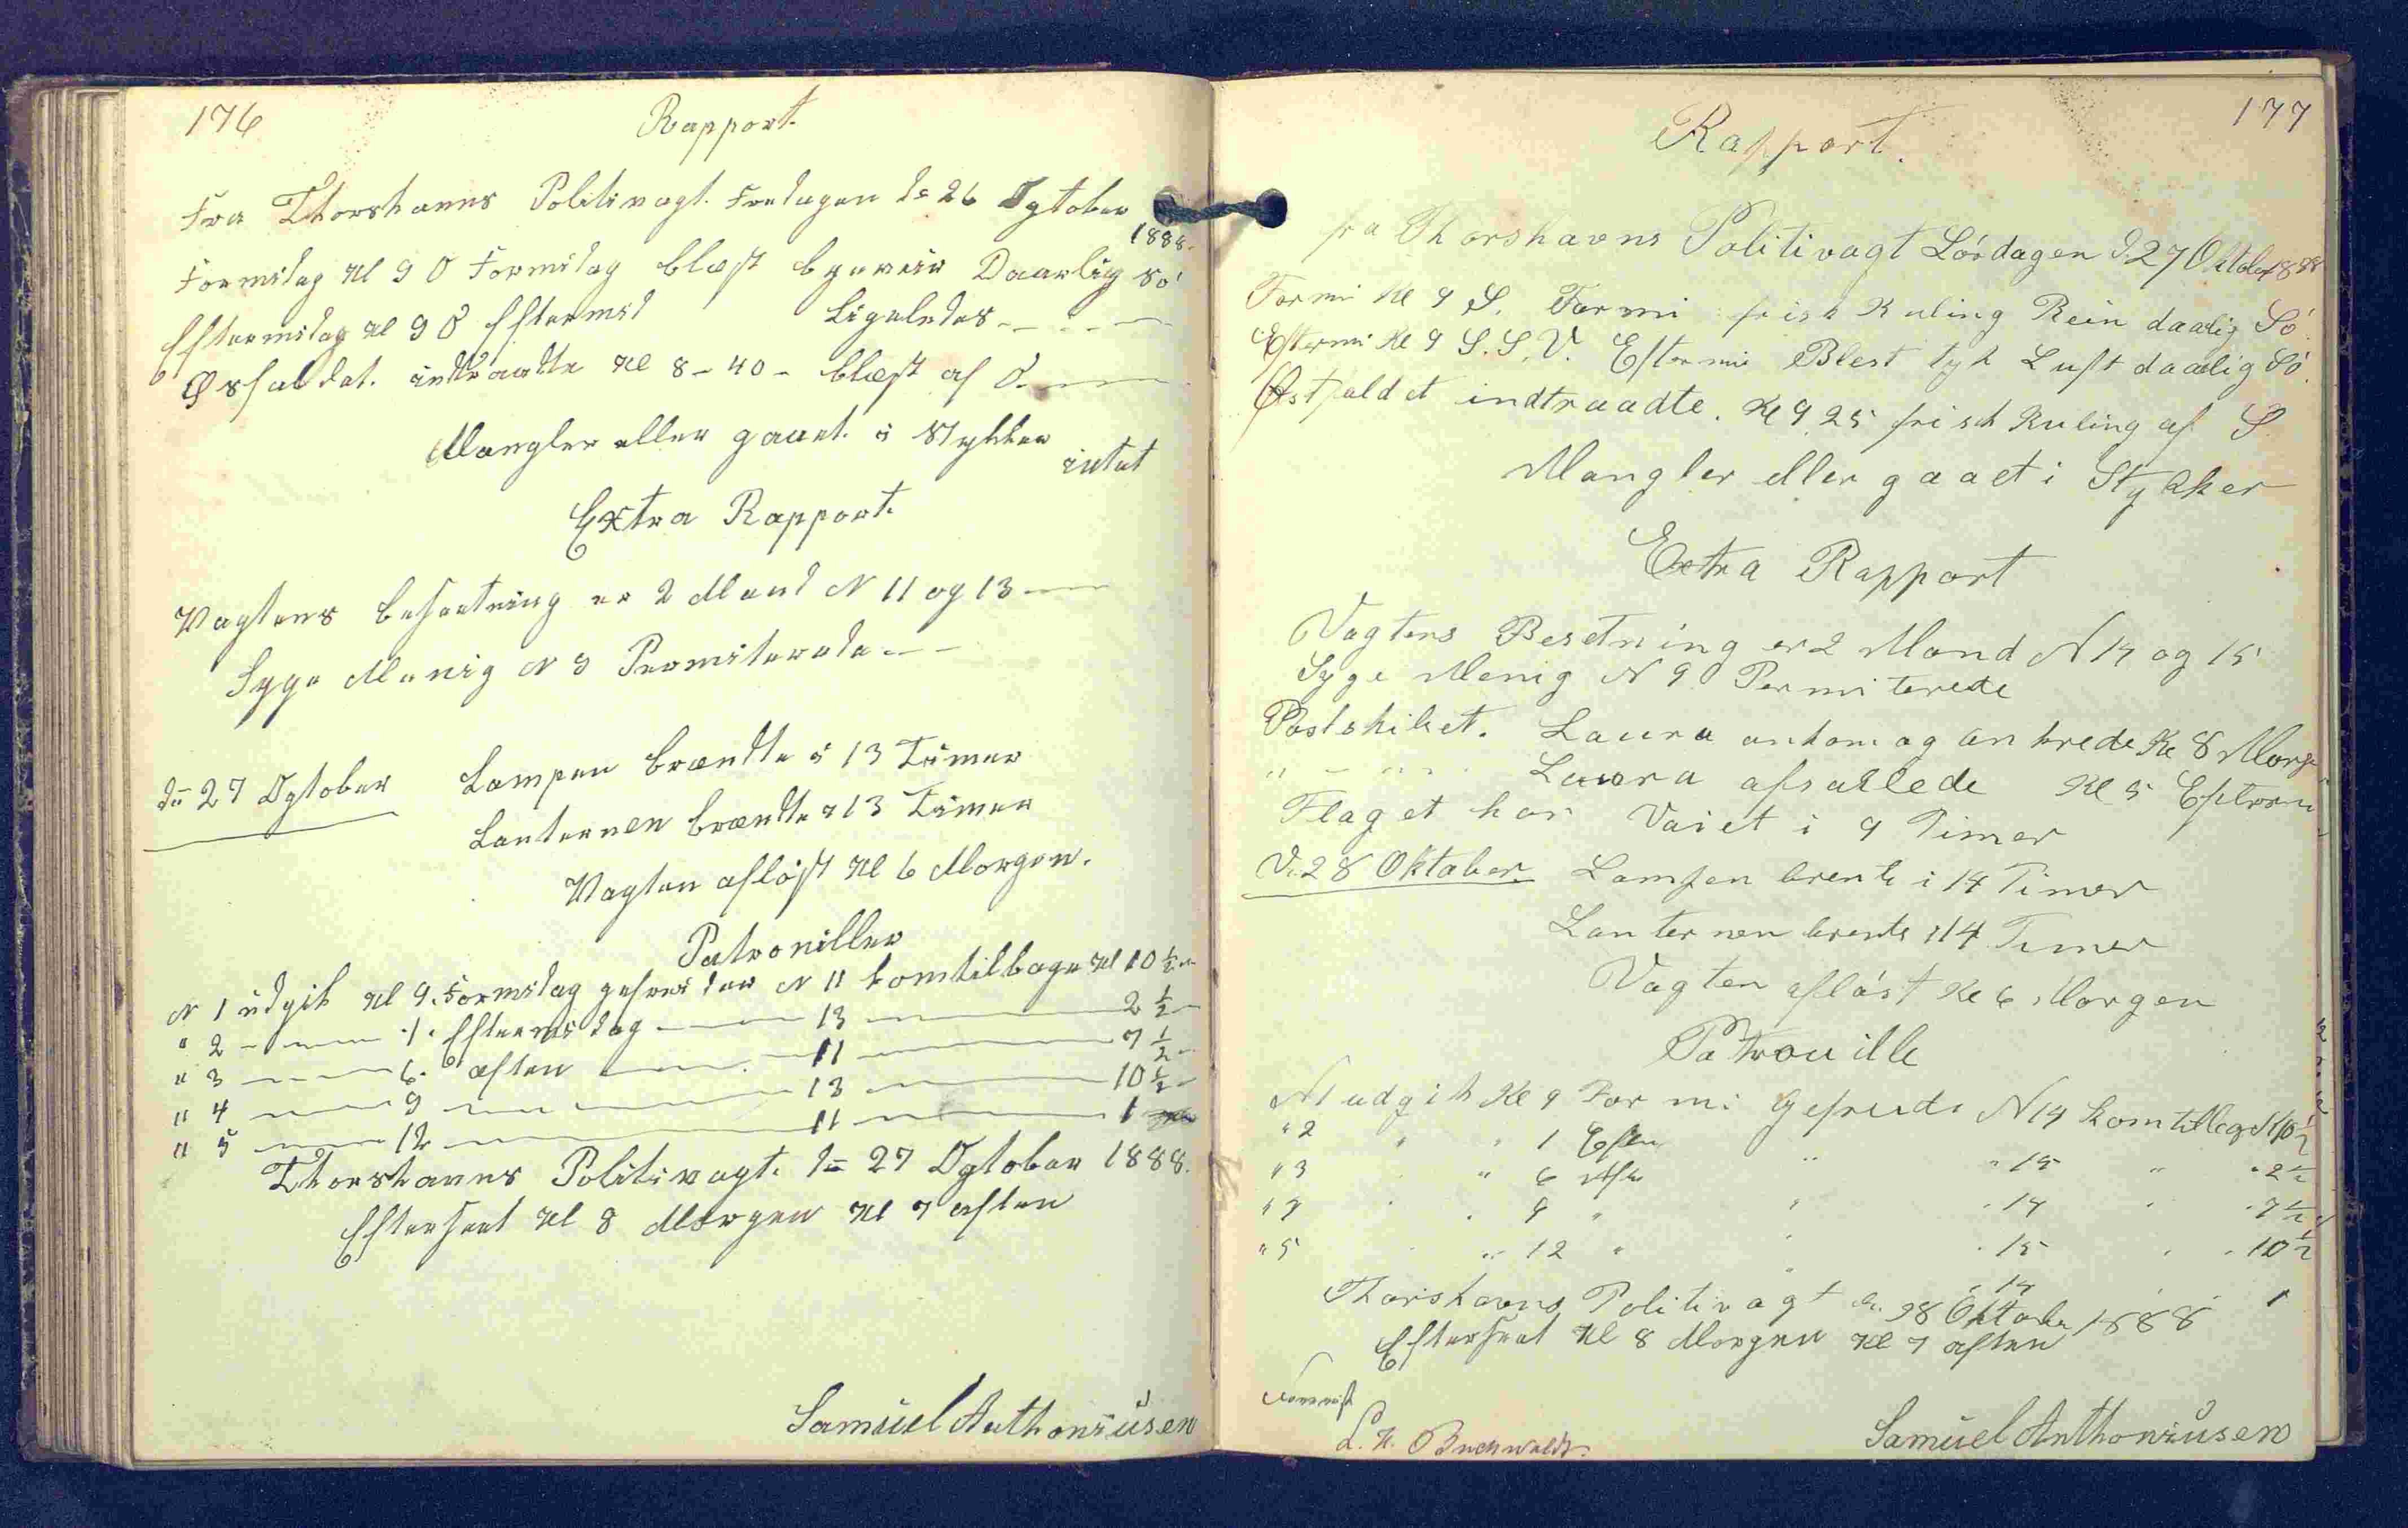 176
Rapport.
Fra Thorshavns Politivagt. Fredagen dn 26 Ogtober
1888.
Formidag Kl 9 O Formidag blæst bygeveir Daarlig Sö
Eftermidag Kl 9 O Eftermid Ligeledes
Østfaldet. indtraadte Kl 8-40- blæst af O.
Mangler eller gaaet. i Stykker
intet
Extra Rapport.
Vagtens besætning er 2 Mand N 11 og 13
Syge Menig N 9 Permiterede
dn 27 Ogtober Lampen brændte i 13 Timer
Lanternen brændte i 13 Timer
Vagten afløst Kl 6 Morgen.
Patroniller
N 1 udgik Kl 9. Formidag gefreider N 11 komtilbage Kl 10 1/2
" 2 1. Eftermidag 13 2 1/2
" 3 6. aften 11 7 1/2
" 4 9 13 10 1/2
" 5 12 11 1
Thorshavns Politivagt. dn 27 Ogtober 1888.
Efterseet Kl 8 Morgen Kl 7 aften
Samuel Anthoniusen
177
Rapport.
fra Thorshavns Politivagt Lördagen d. 27 Oktober 1888
Formi Kl 9 S. Formi frisk Kuling Rein daalig Sö.
Eftermi Kl 9 S.S.V. Eftermi Blest tyk Luft daalig Sö.
Østfaldet indtraadte. Kl 9 25 frisk Kuling af S
Mangler eller gaaet i Stykker
Extra Rapport
Vagtens Besetning er 2 Mand N 14 og 15
Syge Menig N 9 Permiterede
Postskibet. Laura ankom og ankrede Kl 8 Morge
" Laura afsatlede Kl 5 Efterm
Flaget har Vaiet i 9 Timer
D. 28 Oktober Lampen brente i 14 Timer
Lanternen brente i 14 Timer
Vagten afløst Kl 6 Morgen
Patrouille
N 1 udgik Kl 9 Formi Gefreide N 14 komtilbage Kl 10 1/2
" 2 " " 1 Efter
" 3 " 6 Aft " " 15 " " 2 1/2
" 4 " 9 " " 14 " 7 1/2
" 5 " 12 " " 15 " 10 1/2
" 14 1
Thorshavns Politivagt d. 28 Oktober 1888
Efterseet Kl 8 Morgen Kl 7 aften
L. N. Buchwaldt.
Samuel Anthoniusen